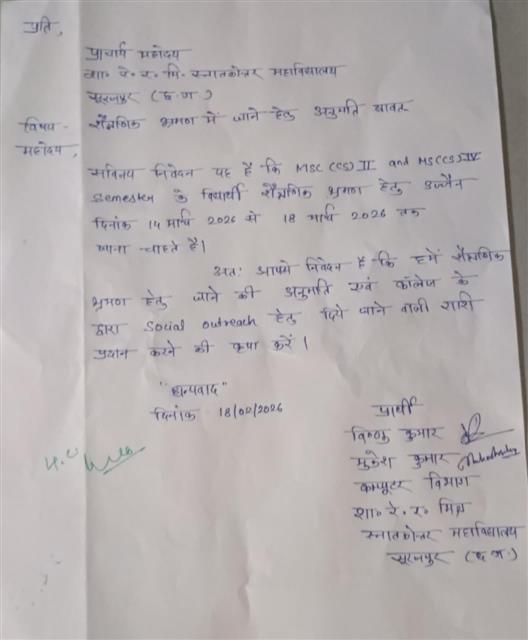 प्रति,
प्राचार्य महोदय
शा० रे. र. मि. स्नातकोत्तर महाविद्यालय
सूरजपुर (छ.ग.)
विषय - शैक्षणिक भ्रमण में जाने हेतु अनुमति बावत्
महोदय,
सविनय निवेदन यह है कि MSC (CS) II and MSC(CS) IV
Semester के विद्यार्थी शैक्षणिक भ्रमण हेतु उज्जैन
दिनांक 14 मार्च 2026 से 18 मार्च 2026 तक
जाना चाहते हैं।
अतः आपसे निवेदन है कि हमें शैक्षणिक
भ्रमण हेतु जाने की अनुमति एवं कॉलेज के
द्वारा Social outreach हेतु दिये जाने वाली राशि
प्रदान करने की कृपा करें।
"धन्यवाद"
दिनांक 18/02/2026
प्रार्थी
विष्णु कुमार
मुकेश कुमार
कम्प्यूटर विभाग
शा० रे. र. मिश्र
स्नातकोत्तर महाविद्यालय
सूरजपुर (छ.ग.)